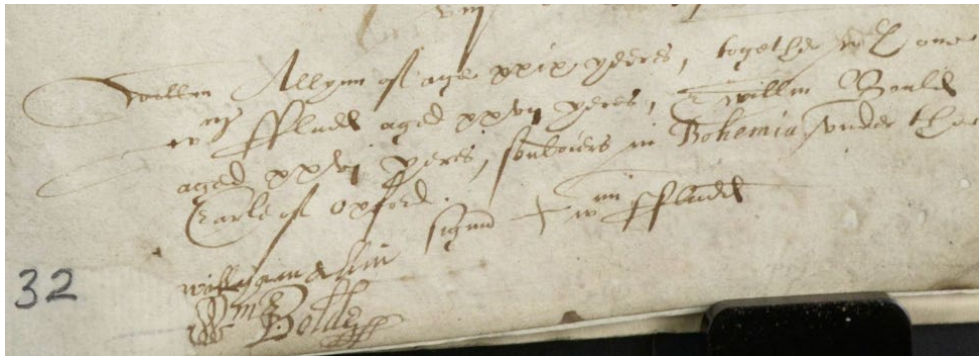 Willm Allynn of age xxix yeeres, together wth one
Wm ffludd aged xxvij yeres, & Willm Boulde
aged xxvj yeres, souldiers in Bohemia vnder the
Earle of Oxford.
signũ + Wm fflludd
Wm Bolde
32